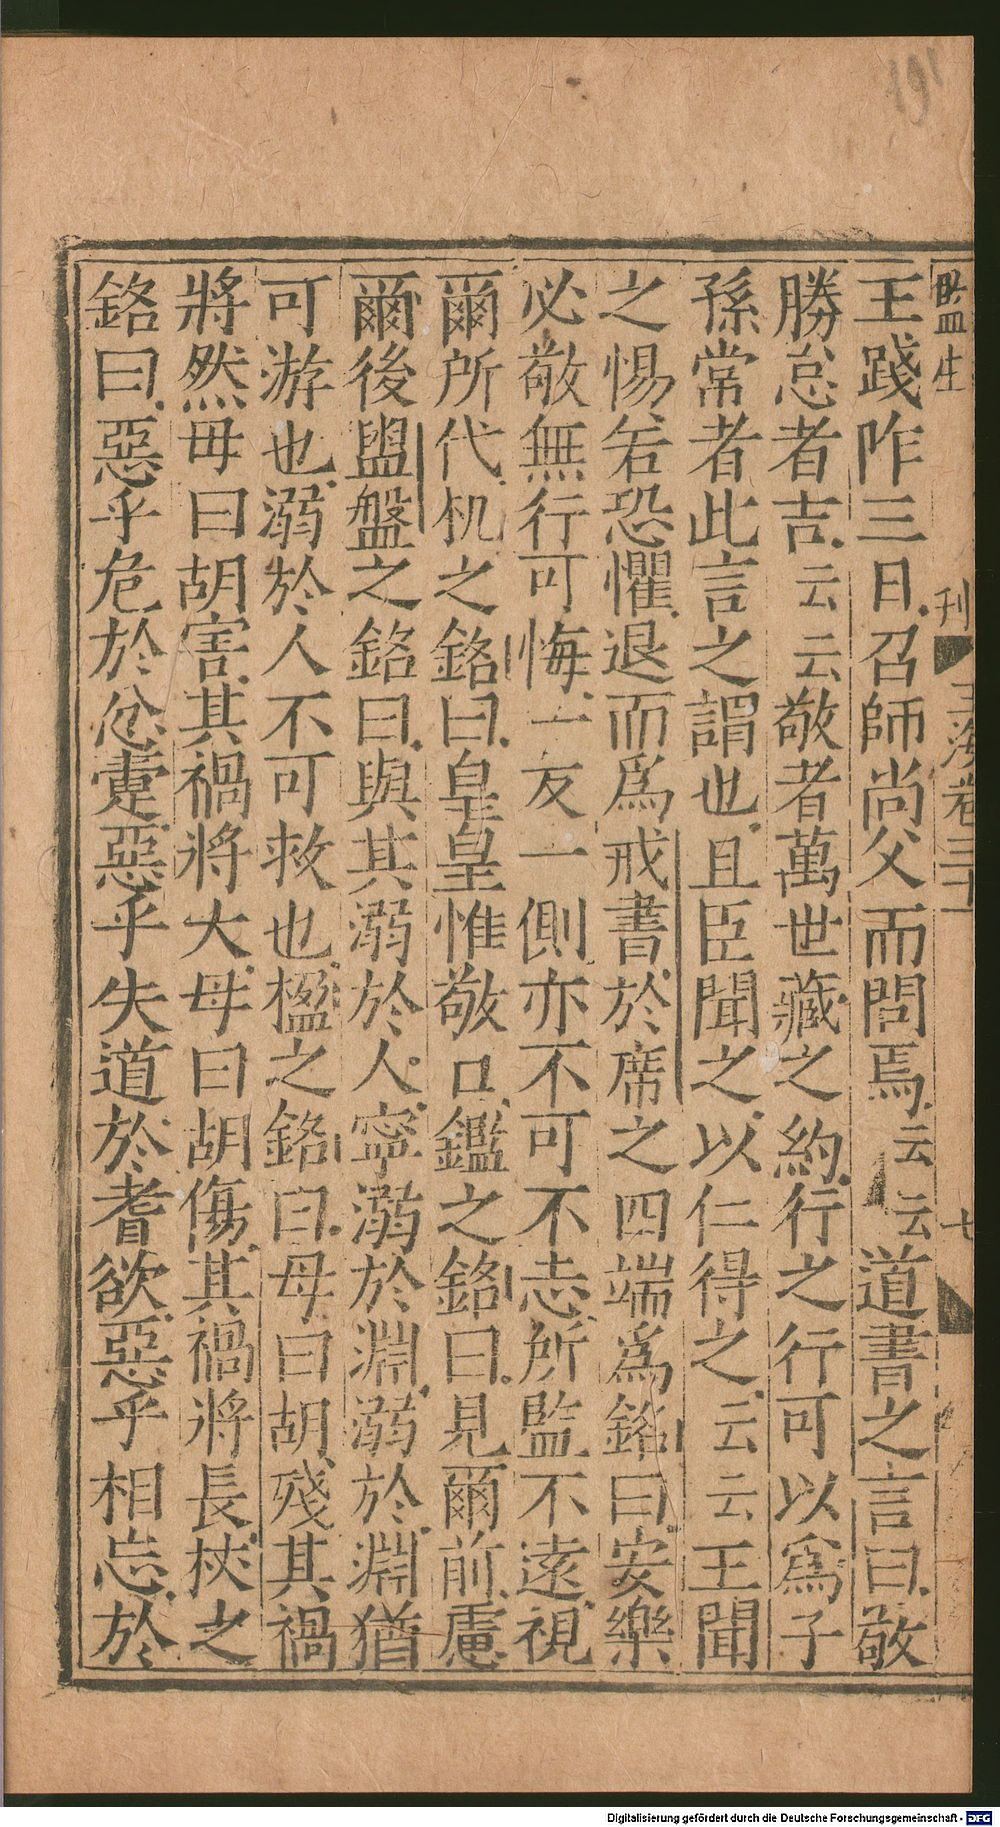 監生 刊 玉海卷三十一 七
王踐阼三日召師尚父而問焉云云道書之言曰敬
勝怠者吉云云敬者萬世藏之約行之行可以爲子
孫常者此言之謂也且臣聞之以仁得之云云王聞
之惕若恐懼退而爲戒書於席之四端爲銘曰安樂
必敬無行可悔一反一側亦不可不志所監不遠視
爾所代机之銘曰皇皇惟敬口鑑之銘曰見爾前慮
爾後盥盤之銘曰與其溺於人寧溺於淵溺於淵猶
可游也溺於人不可救也楹之銘曰毋曰胡殘其禍
將然毋曰胡害其禍將大毋曰胡傷其禍將長杖之
銘曰惡乎危於忿疐惡乎失道於耆欲惡乎相忘於
Digitalisierung gefördert durch die Deutsche Forschungsgemeinschaft - DFG